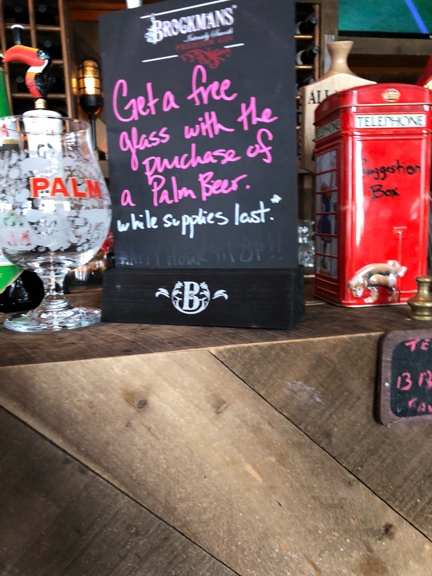 BROCKMANS
Intensely Smooth
PREMIUM GIN
Get a free
glass with the
purchase of
a Palm Beer.
while supplies last.*
B
PALM
TELEPHONE
Suggestion
Box